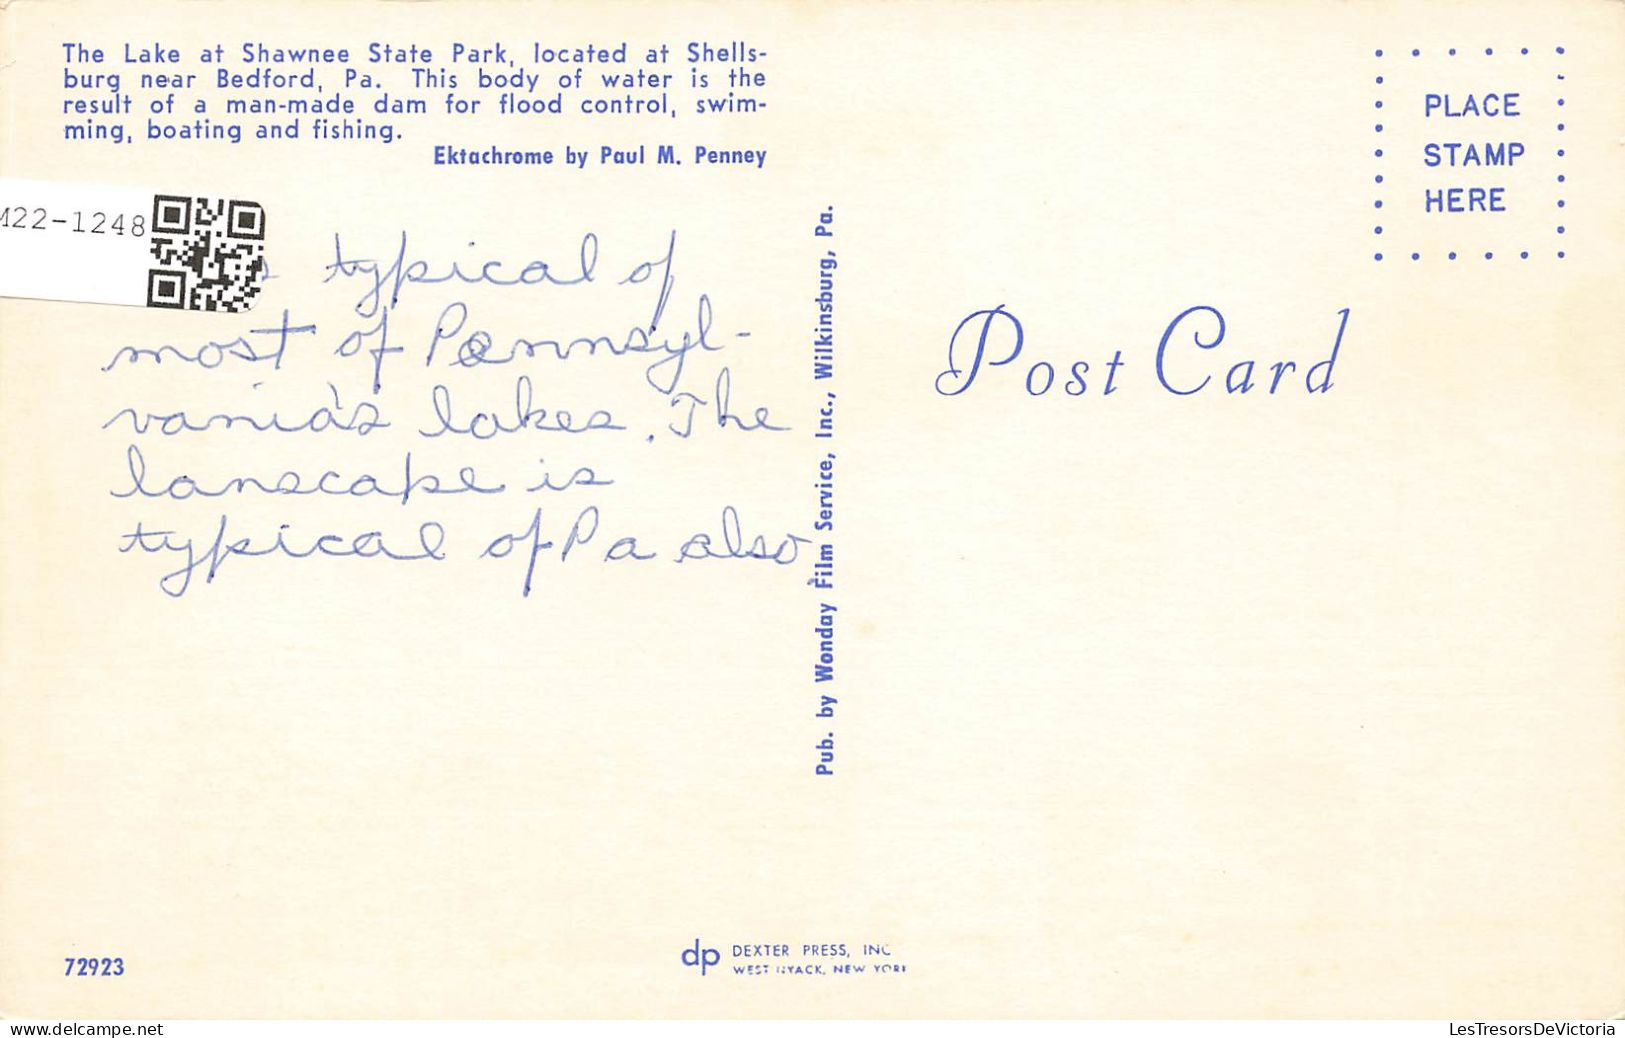 The Lake at Shawnee State Park, located at Shells-
burg near Bedford, Pa. This body of water is the
result of a man-made dam for flood control, swim-
ming, boating and fishing.
Ektachrome by Paul M. Penney
PLACE
STAMP
HERE
22-1248
typical of
most of Pennsyl-
vania's lakes. The
lanscape is
typical of Pa also
Pub. by Wonday Film Service, Inc., Wilkinsburg, Pa.
Post Card
72923
dp DEXTER PRESS, INC
WEST NYACK, NEW YORK
www.delcampe.net
LesTresorsDeVictoria